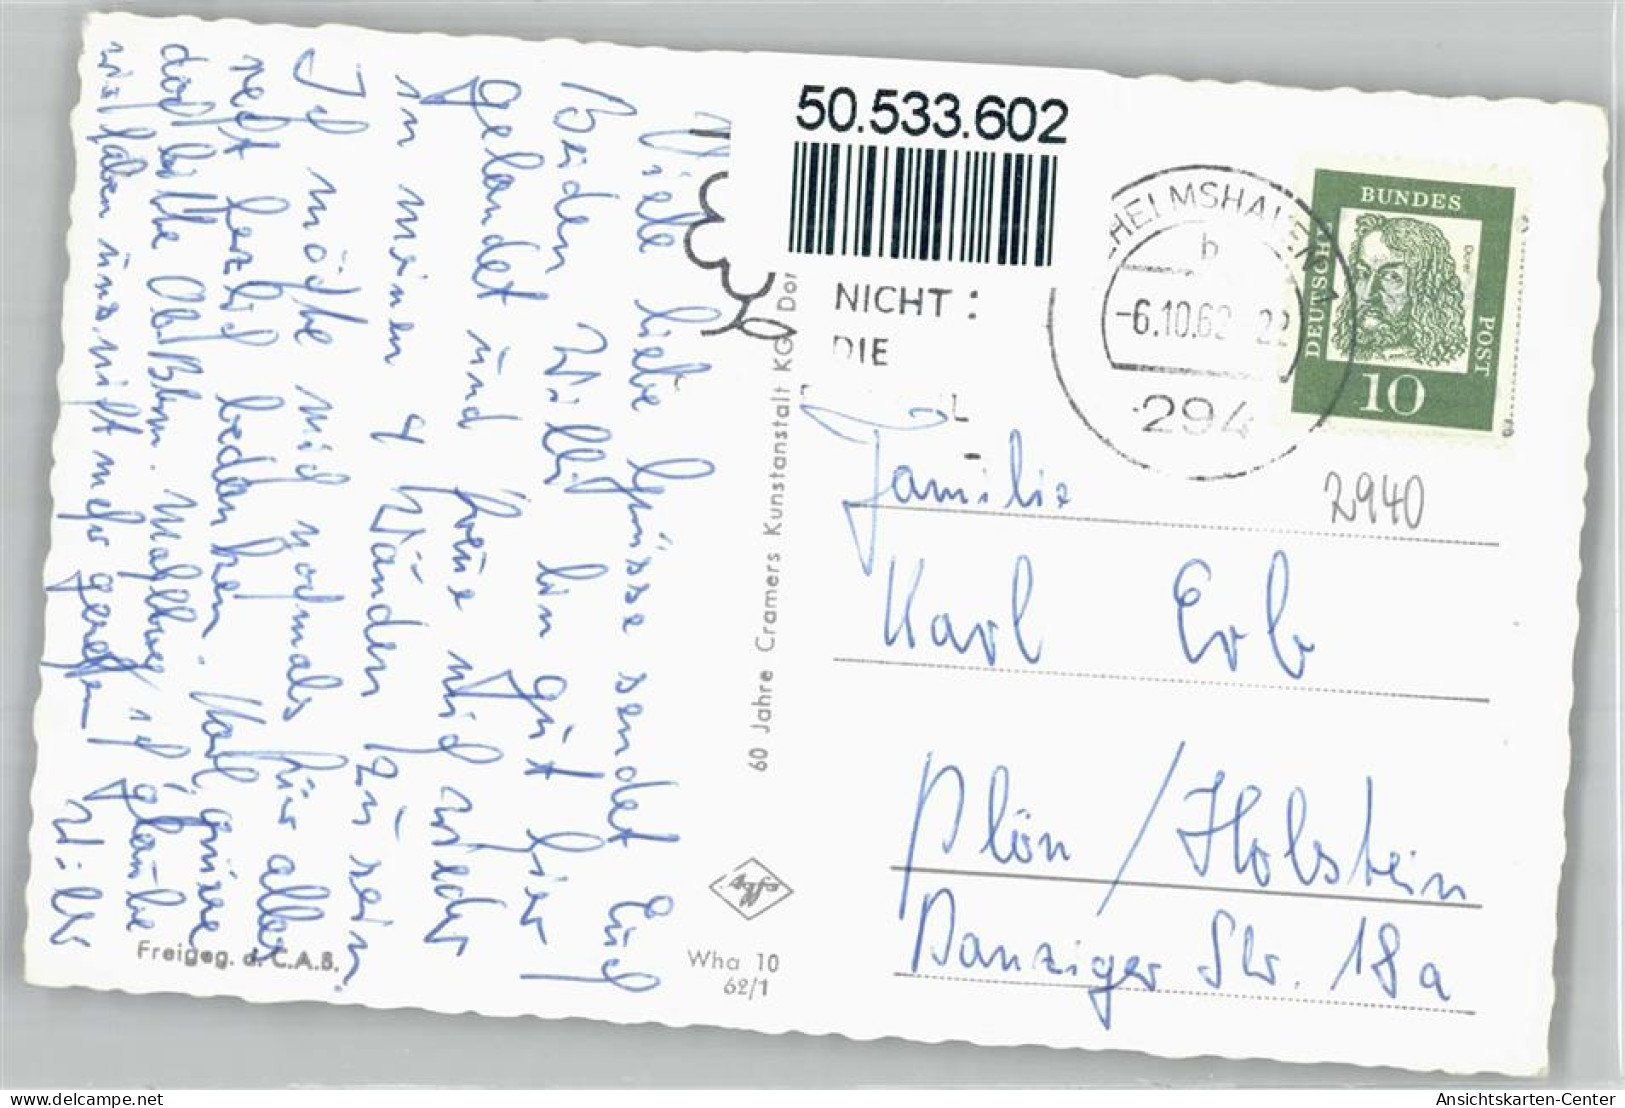 50.533.602
NICHT :
DIE
HELMSHAVEN 1
b
-6.10.62 22
294
DEUTSCHE
BUNDES
POST
Dürer
10
2940
Viele liebe Grüsse sendet Euch
Beiden Willi bin gut hier
gelandet und freue mich wieder
in meinen 4 Wänden zu sein.
Ich möchte mich nochmals für alles
recht herzlich bedanken. Karl grüsse
doch bitte Ob. Btsm. ich glaube
wir haben uns nicht mehr gesehen
Willi
60 Jahre Cramers Kunstanstalt KG, Dor
Agfa
Freigeg. d. C.A.B.
Wha 10
62/1
Familie
Karl Erb
Plön / Holstein
Danziger Str. 18a
delcampe.net
Ansichtskarten-Center